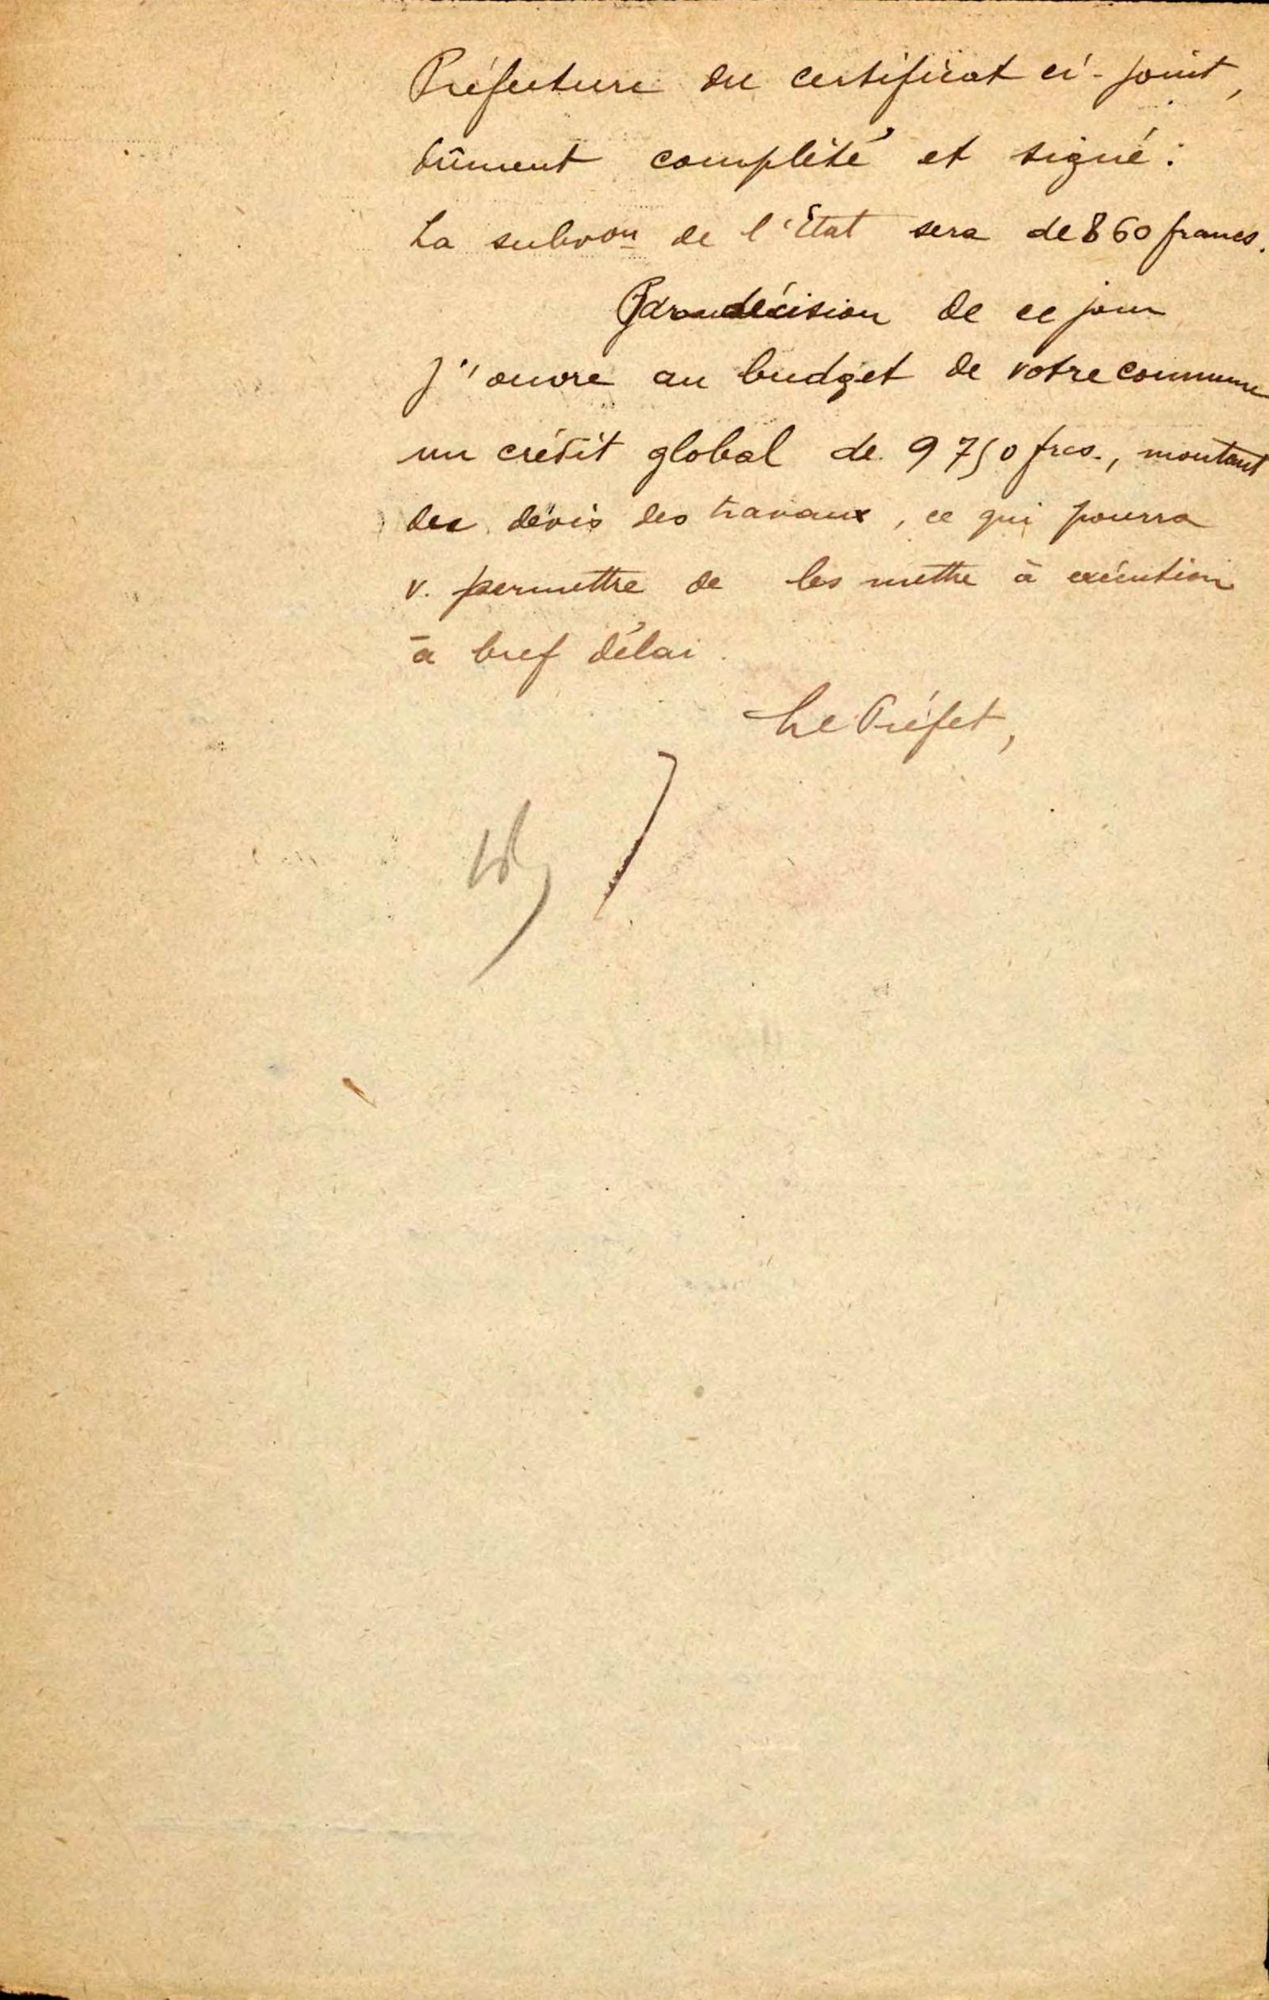 Préfecture du certificat ci-joint,
dûment complété et signé :
La subvon de l'État sera de 860 francs.
Par décision de ce jour
j'ouvre au budget de votre commune
un crédit global de 9750 frcs., montant
des devis des travaux, ce qui pourra
v. permettre de les mettre à exécution
à bref délai.
Le Préfet,